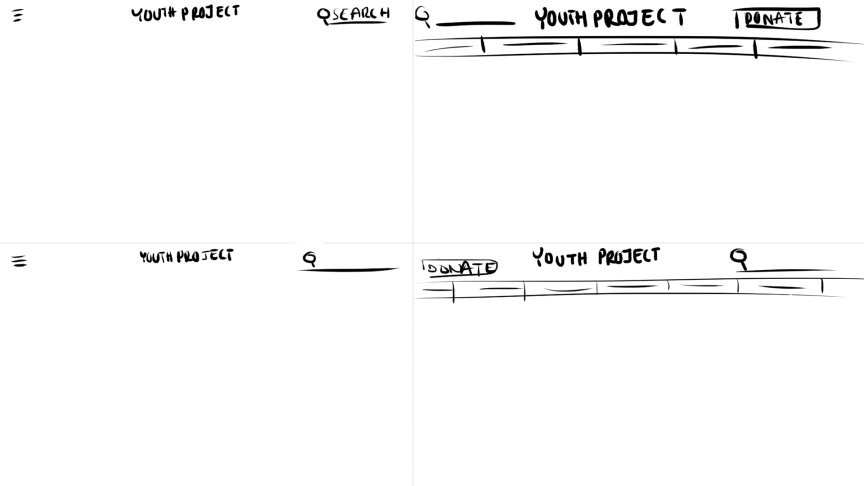 YOUTH PROJECT SEARCH
YOUTH PROJECT DONATE
YOUTH PROJECT
DONATE YOUTH PROJECT